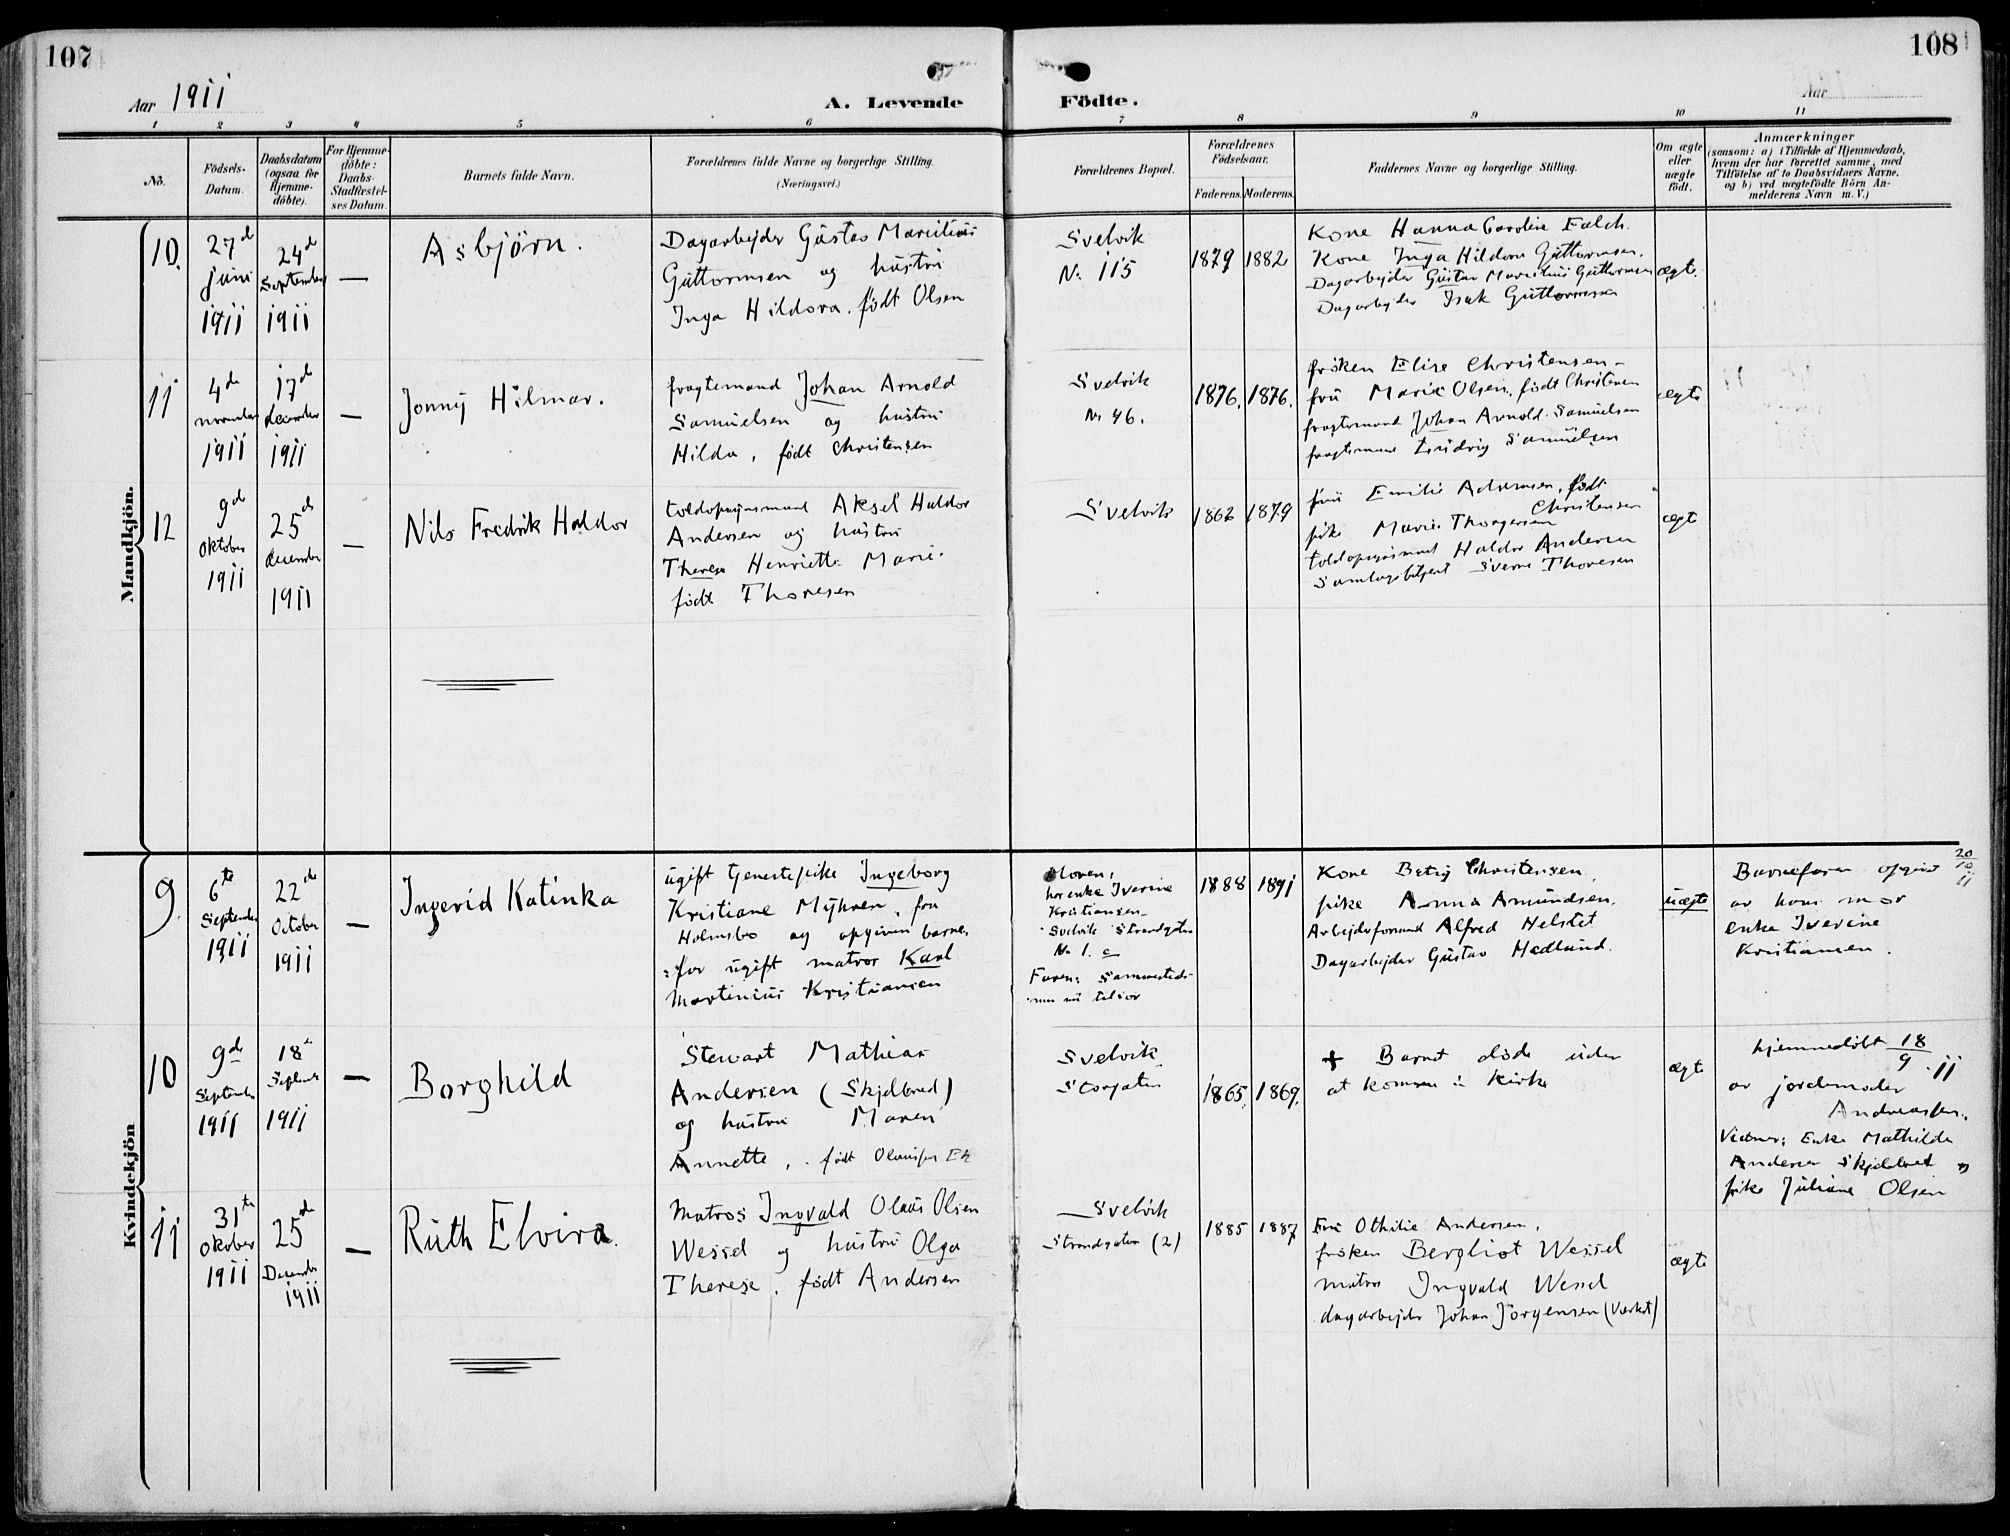 107
108
Aar 1911
A. Levende
Födte.
Aar
1
2
3
4
5
6
7
8
9
10
11
No.
Födsels-
Datum.
Daabsdatum
(ogsaa for
Hjemme-
döbte).
For Hjemme-
döbte:
Daabs-
Stadfæstel-
ses Datum.
Barnets fulde Navn.
Forældrenes fulde Navne og borgerlige Stilling.
(Næringsvei.)
Forældrenes Bopæl.
Forældrenes
Födselsaar.
Faderens.
Moderens.
Faddernes Navne og borgerlige Stilling.
Om ægte
eller
uægte
födt.
Anmærkninger
(saasom: a) i Tilfælde af Hjemmedaab,
hvem der har forrettet samme, med
Tilföielse af to Daabsvidners Navne,
og b) ved uægtefödte Börn An-
melderens Navn m. V.)
Mandkjön.
10.
27d
juni
1911
24d
September
1911
—
Asbjörn.
Dagarbejder Gustav Marelius
Guttormsen og hustru
Inga Hildora. født Olsen
Svelvik
No 115
1879
1882
Kone Hanna Caroline Falch.
Kone Inga Hildora Guttormsen.
Dagarbejder Gustav Marelius Guttormsen
Dagarbejder Isak Guttormsen
ægt.
11
4de
november
1911
17de
december
1911
—
Jonny Hilmar.
fragtemand Johan Arnold
Samuelsen og hustru
Hilda, født Christensen
Svelvik
No 46.
1876.
1876.
frøken Elise Christensen
fru Marie Olsen, født Christensen
fragtemand Johan Arnold Samuelsen
fragtemand Ludvig Samuelsen
ægte
12
9de
Oktober
1911
25de
december
1911
—
Nils Fredrik Haldor
toldopsynsmand Aksel Haldor
Andersen og hustru
Therese Henriette Marie
født Thoresen
Svelvik
1862
1879
fru Emilie Adamsen, født
Christensen
pike Marie Thorgersen
toldopsynsmand Haldor Andersen
Samlagsbetjent Sverre Thoresen
ægt
Kvindekjön
9.
6te
September
1911
22de
October
1911
—
Ingerid Katinka
ugift tjenestepike Ingeborg
Kristiane Myhren, fra
Holmsbo og opgiven barne-
far ugift matros Karl
Martinius Kristiansen
Moren:
hos enke Iverine
Kristiansen
Svelvik Strandgaten
No 1. c
Faren: Sammesteds
men nu tilsjøs
1888
1891
Kone Betsy Christensen
pike Anna Amundsen.
Arbejdsformand Alfred Helstet
Dagarbejder Gustav Hedlund.
uægte
Barnefaren opgivet 20/10 11
av hans mor
enke Iverine
Kristiansen.
10
9de
September
1911
18de
September
1911
—
Borghild
Stewart Mathias
Andersen (Skjelbred)
og hustru Maren
Annette, født Olausen Ek
Svelvik
Storgaten
1865.
1869.
+ Barnet døde uden
at komme i kirke
ægte
hjemmedøbt 18/9.11
av jordemoder
Andreassen.
Vidner: Enke Mathilde
Andersen Skjelbred og
pike Juliane Olsen
11
31te
Oktober
1911
25de
December
1911
—
Ruth Elvira.
Matros Ingvald Olaus Olsen
Wessel og hustru Olga
Therese, født Andersen
Svelvik
Strandgaten (2)
1885
1887
Fru Othilie Andersen,
frøken Bergliot Wessel
matros Ingvald Wessel
dagarbejder Johan Jørgensen (Værket)
ægte